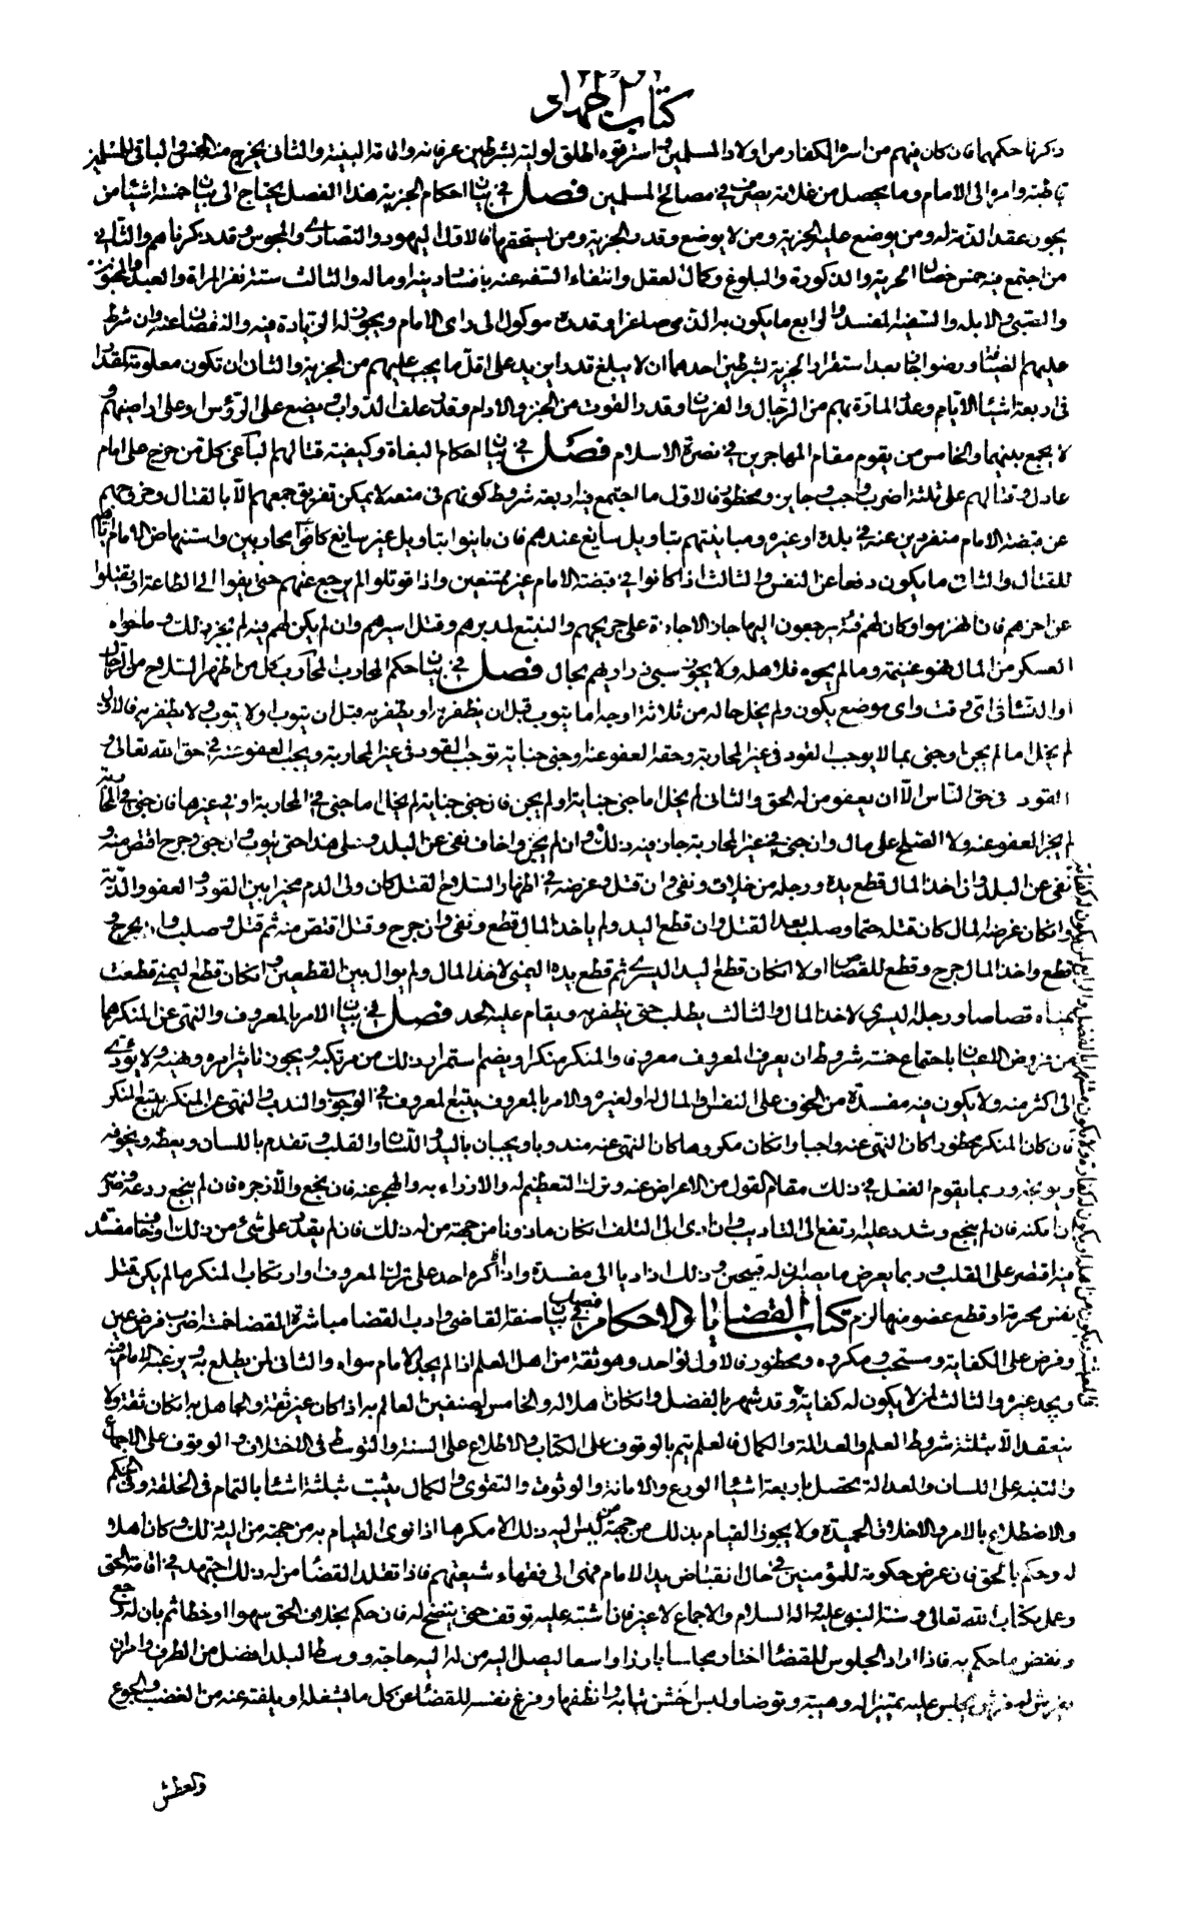 كتاب الجهاد
ذكرنا حكمهما فان كان فيهم من اسره الكفار من اولاد المسلمين واسترقوه اطلق لوليه بشرطين عرفانه واقامة البينة والثاني يخرج منه الخمس والباقي للمسلمين
قاطبة وامره الى الامام وما يحصل من غلاته يصرف في مصالح المسلمين فصل في بيان احكام الجزية هذا الفصل يحتاج الى بيان خمسة اشياء من
يجوز عقد الذمة له ومن يوضع عليه الجزية ومن لا يوضع وقدر الجزية ومن يستحقها فالاول اليهود والنصارى والمجوس وقد ذكرناهم والثاني
من اجتمع فيه خمس خصال الحرية والذكورة والبلوغ وكمال العقل وانتفاء السفه عنه بافساد دينه وماله والثالث ستة نفر المراة والعبد والمجنون
والصبي والابله والسفيه المفسد والرابع ما يكون به الذمي صاغرا وقدره موكول الى راى الامام ويجوز له الزيادة فيه والنقصان عنه وان شرط
عليهم الضيافة ورضوا بها بعد استقرار الجزية بشرطين احدهما ان لا يبلغ قدرا يزيد على اقل ما يجب عليهم من الجزية والثاني ان تكون معلومة
في اربعة اشياء الايام وعدد المارة بهم من الرجال والفرسان وقدر القوت من الخبز والادام وقدر علف الدواب ويضع على الرؤس او على اراضيهم و
لا يجمع بينهما والخامس من يقوم مقام المهاجرين في نصرة الاسلام فصل في بيان احكام البغاة وكيفية قتالهم الباغي كل من خرج على امام
عادل وقتالهم على ثلثة اضرب واجب وجايز ومحظور فالاول ما اجتمع فيه اربعة شروط كونهم في منعة لا يمكن تفريق جمعهم الا بالقتال وخروجهم
عن قبضة الامام منفردين عنه في بلدة او غيره ومباينتهم بتاويل سايغ عندهم فان باينوا بتاويل غير سايغ كانوا محاربين واستنهاض الامام اياهم
للقتال والثاني ما يكون دفعا عن النفس والثالث اذا كانوا في قبضة الامام غير ممتنعين واذا قوتلوا لم يرجع عنهم حتى يفيؤا الى الطاعة او يقتلوا
عن اخرهم فان انهزموا وكان لهم فئة يرجعون اليها جاز الاجازة على جريحهم والتتبع لمدبرهم وقتل اسيرهم وان لم يكن لهم فئة لم يجز ذلك وما حواه
العسكر من المال فهو غنيمة وما لم يحوه فلاهله ولا يجوز سبي ذراريهم بحال فصل في بيان حكم المحارب المحارب كل من اظهر السلاح من الرجال
او النساء في اي وقت واي موضع يكون ولم يخل حاله من ثلاثة اوجه اما يتوب قبل ان يظفر به او يظفر به قبل ان يتوب او لا يتوب ولا يظفر به فالاول
لم يخل اما لم يجن او جنى بما لا يوجب القود في غير المحاربة وحقه العفو عنه او جنى جناية توجب القود في غير المحاربة ويجب العفو عنه في حق الله تعالى و
القود في حق الناس الا ان يعفو من له الحق والثاني لم يخل اما جنى جناية او لم يجن فان جنى جناية لم يخل اما جنى في المحاربة او في غيرها فان جنى في المحاربة
لم يجز العفو عنه ولا الصلح على مال وان جنى في غير المحاربة جاز فيه ذلك وان لم يجن واخاف نفي عن البلد وعلى هذا حتى يتوب وان جنى وجرح اقتص منه و
نفي عن البلد وان اخذ المال قطع يده ورجله من خلاف ونفي وان قتل وغرضه في اظهار السلاح القتل كان ولى الدم مخيرا بين القود والعفو والدية
وان كان غرضه المال كان قتله حتما وصلب بعد القتل وان قطع اليد ولم ياخذ المال قطع ونفي وان جرح وقتل اقتص منه ثم قتل وصلب وان جرح و
قطع واخذ المال جرح وقطع للقصاص اولا ان كان قطع اليد اليسرى ثم قطع يده اليمنى لاخذ المال ولم يوال بين القطعين وان كان قطع اليمنى قطعت
يمناه قصاصا ورجله اليسرى لاخذ المال والثالث يطلب حتى يظفر به ويقام عليه الحد فصل في بيان الامر بالمعروف والنهي عن المنكر هما
من فروض الاعيان باجتماع خمسة شروط ان يعرف المعروف معروفا والمنكر منكرا ويضم استمرار ذلك من مرتكبه ويجوز تاثير امره ونهيه ولا يؤدى
الى اكثر منه ولا يكون فيه مفسدة من الخوف على النفس او المال له او لغيره والامر بالمعروف يتبع المعروف في الوجوب والندب والنهي عن المنكر يتبع المنكر
فان كان المنكر محظورا كان النهي عنه واجبا وان كان مكروها كان النهي عنه مندوبا ويجبان باليد واللسان والقلب وتقدم باللسان ويعظه ويخوفه
ويوبخه وربما يقوم الفعل في ذلك مقام القول من الاعراض عنه وترك التعظيم له والازراء به والهجر عنه فان نجع والا زجره فان لم ينجع ردعه وضربه
ان امكنه فان لم ينجع وشدد عليه وتفع الى التاديب وان ادى الى التلف ان كان ماذونا من جهة من له ذلك فان لم يقدر على شئ من ذلك او خاف مفسدة
فيه اقتصر على القلب وربما يعرض ما يصيران له قبيحين وذلك اذا ادّيا الى مفسدة واذا اكره احد على ترك المعروف او ارتكاب المنكر ما لم يكن قتل
نفس محرمة او قطع عضو منها لزم كتاب القضايا والاحكام فصل في بيان صفة القاضي وادب القضا مباشرة القضا خمسة اضرب فرض عين
وفرض على الكفاية ومستحب ومكروه ومحظور فالاول لواحد وهو ثقة من اهل العلم اذا لم يجد الامام سواه والثاني لمن يطلع به ويرغبه الامام فيه
ويجد غيره والثالث لمن لا يكون له كفاية وقد شهر بالفضل وان كان اهلا له والخامس لصنفين العالم به اذا كان غير ثقة والجاهل به ان كان ثقة ولا
ينعقد الا بثلثة شروط العلم والعدالة والكمال فالعلم يتم بالوقوف على الكتاب والاطلاع على السنة والتوسط في الاختلاف والوقوف على الاجماع
والتنبه على اللسان والعدالة تحصل باربعة اشياء الورع والامانة والوثوق والتقوى والكمال يثبت بثلثة اشياء بالتمام في الخلقة وفي الحكم
والاضطلاع بالامر والاخلاق الحميدة ولا يجوز القيام بذلك من جهة من ليس اليه ذلك الا مكرها اذا نوى القيام به من جهة من اليه ذلك وكان اهلا
له وحكم بالحق فان عرض حكومة للمؤمنين في حال انقباض يد الامام فهي الى فقهاء شيعتهم فاذا تقلد القضا من له ذلك اجتهد في اقامة الحق
وعمل بكتاب الله تعالى وسنة النبي عليه واله السلام والاجماع لا غير فان اشتبه عليه توقف حتى يتضح له فان حكم بخلاف الحق سهوا او خطا ثم بان له رجع
ونقض ما حكم به فاذا اراد الجلوس للقضاء اختار مجلسا بارزا واسعا ليصل اليه من له اليه حاجة ووسط البلد افضل من الطرف وامر ان
يفرش له فرش يجلس عليه تمييزا له وهيبة وتوضا ولبس اخشن ثيابه وانظفها وفرغ نفسه للقضاء عن كل ما يشغله او يلفته عنه من الغضب والجوع
والعطش